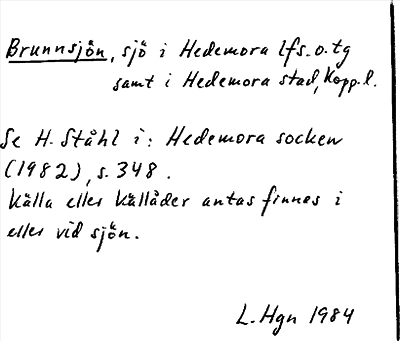 Brunnsjön, sjö i Hedemora lfs. o. tg
samt i Hedemora stad, Kopp. l.
Se H. Ståhl i: Hedemora socken
(1982), s. 348.
Källa eller källåder antas finnas i
eller vid sjön.
L. Hgn 1984